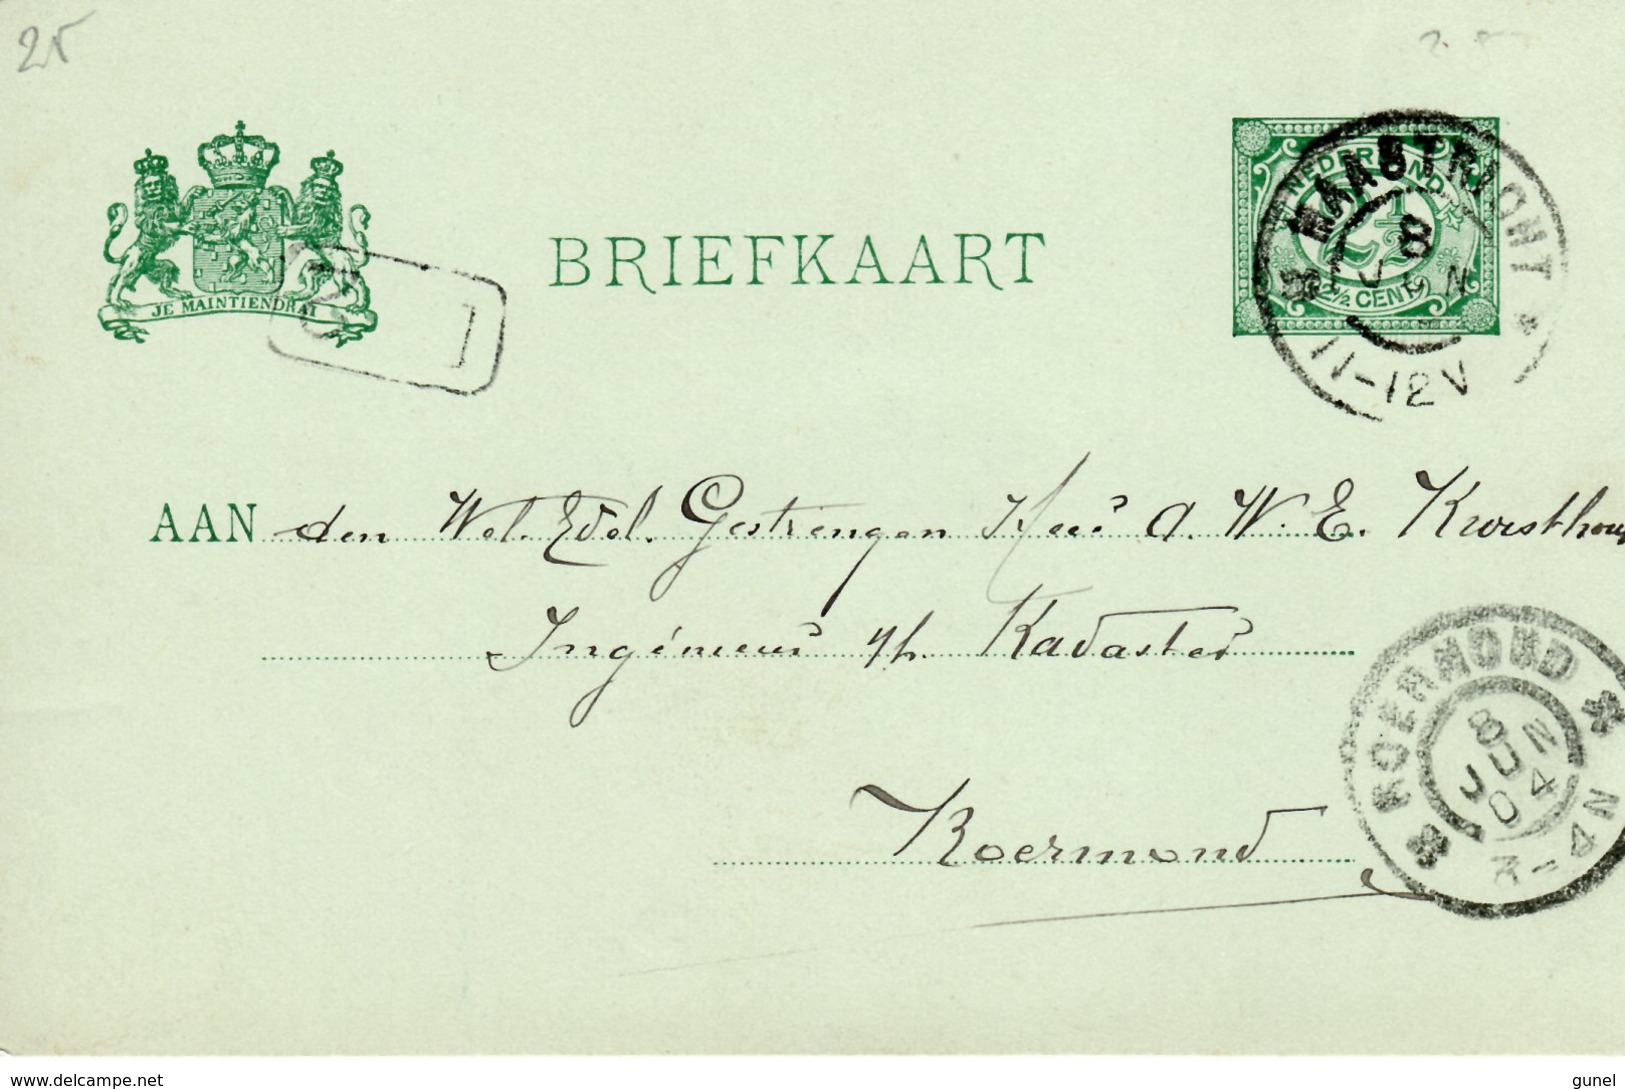 25
JE MAINTIENDRAI
BRIEFKAART
NEDERLAND
2½
2½ CENT
MAASTRICHT
8 JUN
11-12V
AAN den Wel.Edel. Gestrengen Heer A. W. E. Kwisthout
Ingénieur v/h. Kadaster
Roermond
ROERMOND
8
JUN
04
3-4N
www.delcampe.net
gunel